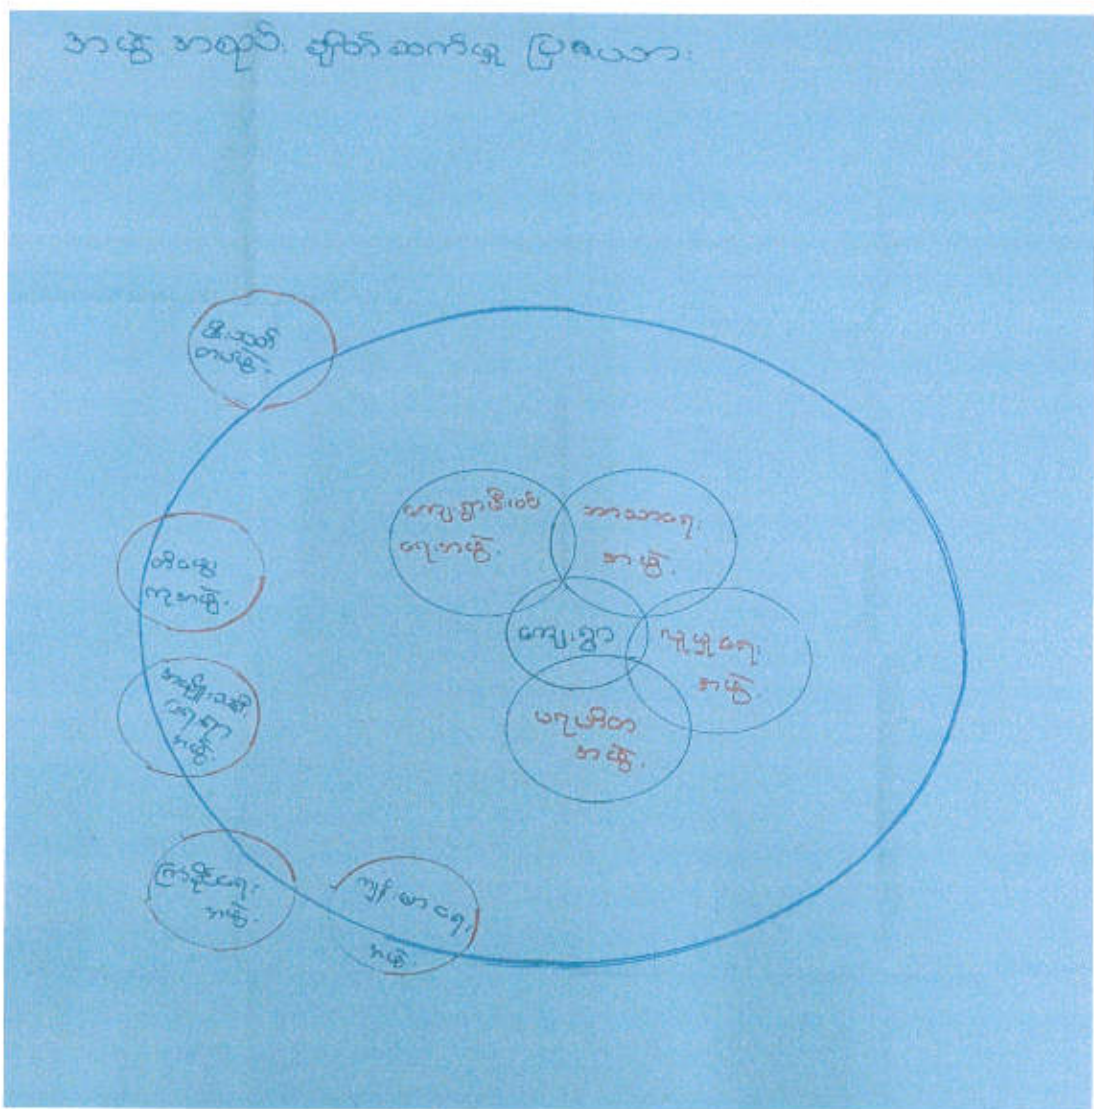 အဖွဲ့ အစည်း ချိတ်ဆက်မှု ပြဇယား
မီးသတ်
တပ်ဖွဲ့
ကျေးရွာဖွံ့ဖြိုး
ရေးအဖွဲ့
ဘာသာရေး
အဖွဲ့
ကျေးရွာ
လူမှုရေး
အဖွဲ့
ပရဟိတ
အဖွဲ့
အမျိုးသမီး
ရေးရာ
အဖွဲ့
ကြံ့ခိုင်ရေး
အဖွဲ့
ကျန်းမာရေး
အဖွဲ့